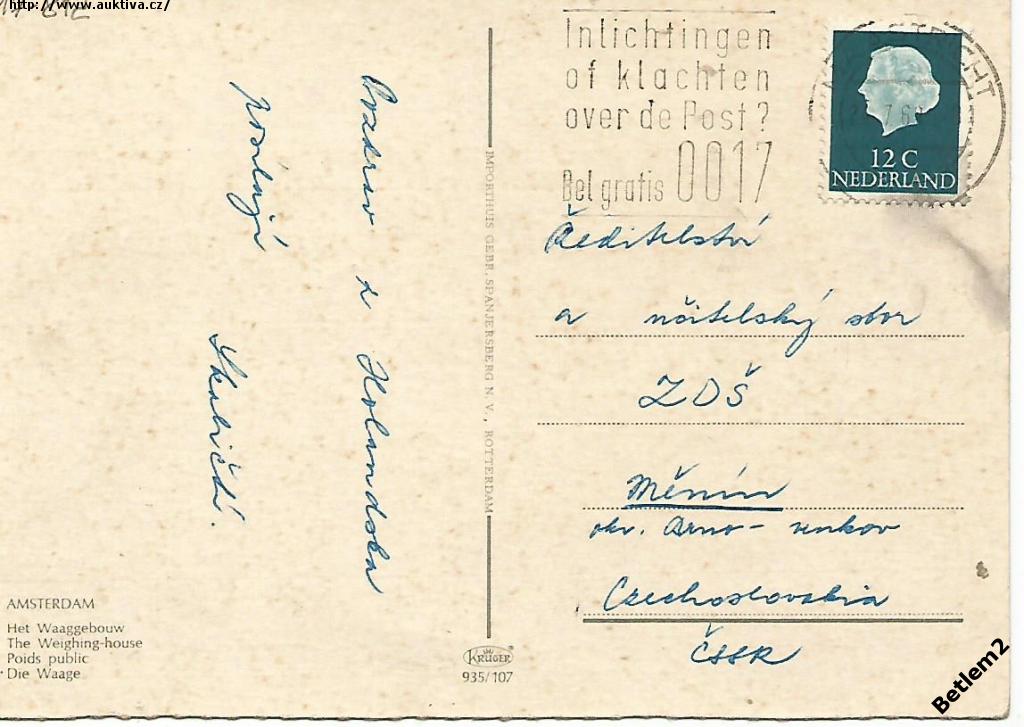 http://www.auktiva.cz/
Pozdrav z Holandska
posílají
Skaličtí.
IMPORTHUIS GEBR. SPANJERSBERG N.V., ROTTERDAM
AMSTERDAM
Het Waaggebouw
The Weighing-house
Poids public
Die Waage
KRÜGER
935/107
Inlichtingen
of klachten
over de Post?
Bel gratis 0017
12 C
NEDERLAND
Ředitelství
a učitelský sbor
ZDŠ
Měnín
okr. Brno - venkov
Czechoslovakia
ČSSR
Betlem2